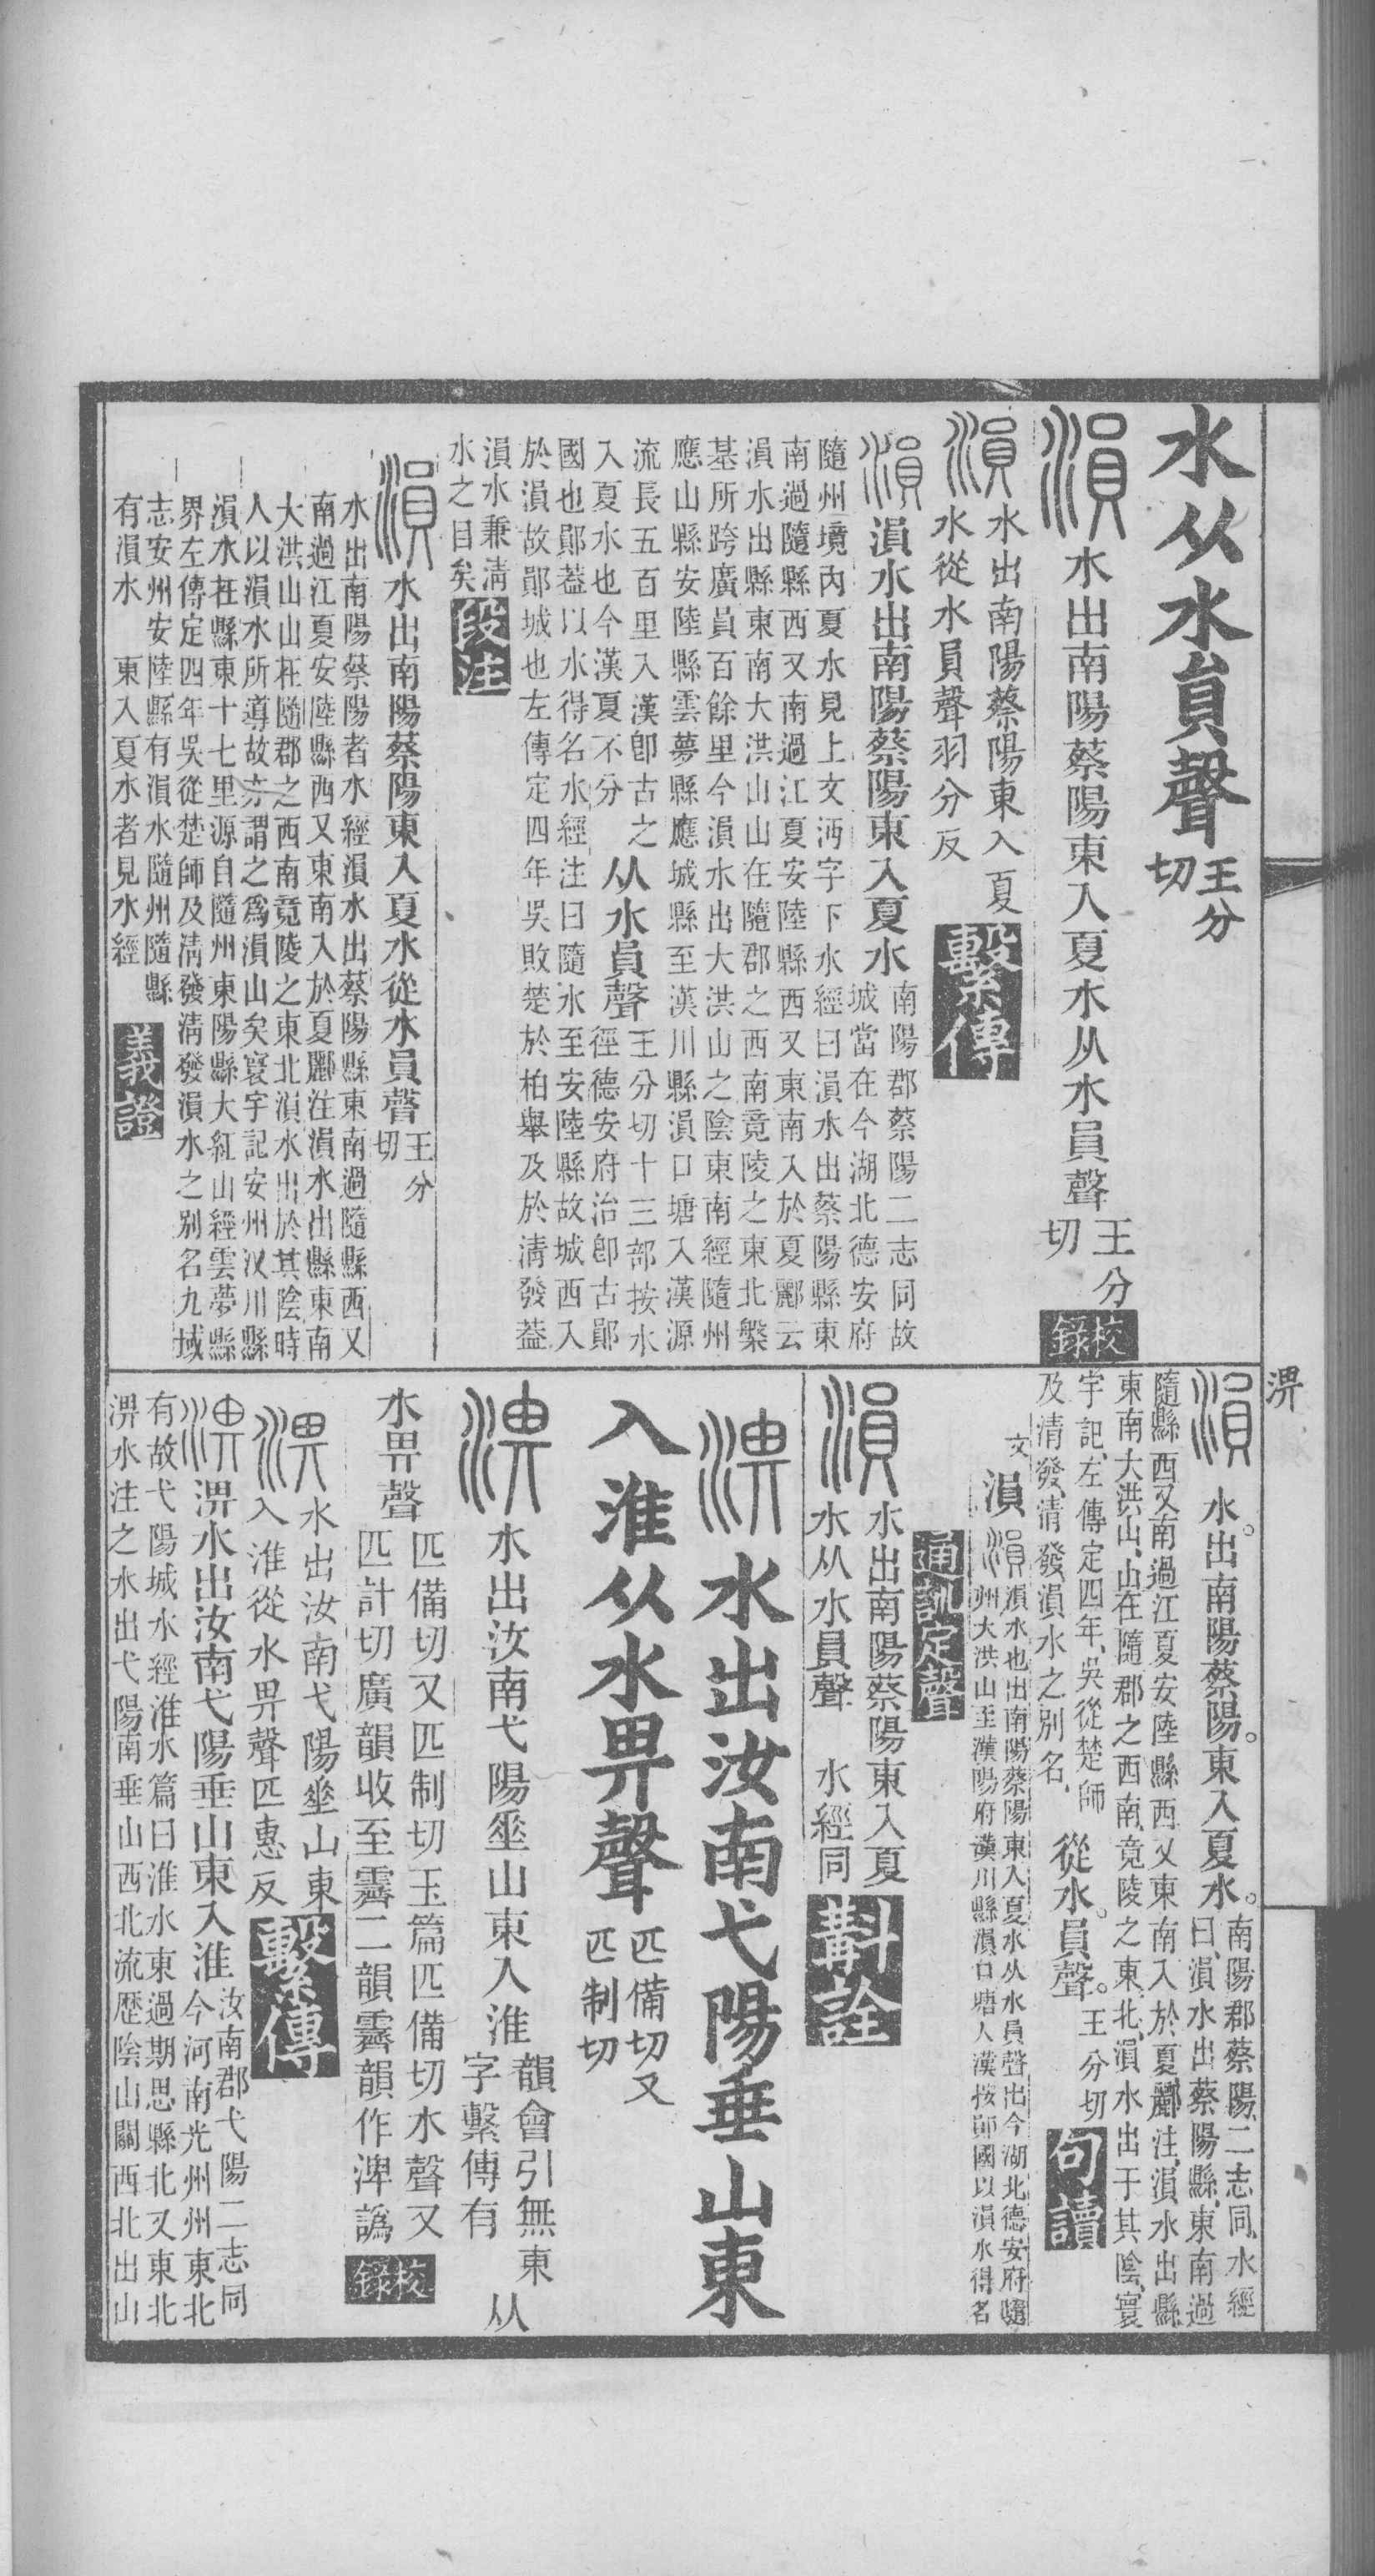 水从水員聲王分切
溳水出南陽蔡陽東入夏水从水員聲王分切校錄
溳水出南陽蔡陽東入夏
水從水員聲羽分反繫傳
溳溳水出南陽蔡陽東入夏水南陽郡蔡陽二志同故
城當在今湖北德安府
隨州境內夏水見上文沔字下水經曰溳水出蔡陽縣東
南過隨縣西又南過江夏安陸縣西又東南入於夏酈云
溳水出縣東南大洪山山在隨郡之西南竟陵之東北槃
基所跨廣員百餘里今溳水出大洪山之陰東南經隨州
應山縣安陸縣雲夢縣應城縣至漢川縣溳口塘入漢源
流長五百里入漢卽古之
入夏水也今漢夏不分从水員聲王分切十三部按水
徑德安府治卽古鄖
國也鄖葢以水得名水經注曰隨水至安陸縣故城西入
於溳故鄖城也左傳定四年吳敗楚於柏舉及於淸發葢
溳水兼淸
水之目矣段注
溳水出南陽蔡陽東入夏水從水員聲王分切
水出南陽蔡陽者水經溳水出蔡陽縣東南過隨縣西又
南過江夏安陸縣西又東南入於夏酈注溳水出縣東南
大洪山山在隨郡之西南竟陵之東北溳水出於其陰時
人以溳水所導故亦謂之爲溳山矣寰宇記安州汉川縣
溳水在縣東十七里源自隨州東陽縣大紅山經雲夢縣
界左傳定四年吳從楚師及淸發淸發溳水之别名九域
志安州安陸縣有溳水隨州隨縣
有溳水 東入夏水者見水經義證
溳水出南陽蔡陽東入夏水南陽郡蔡陽二志同水經
曰溳水出蔡陽縣東南過
隨縣西又南過江夏安陸縣西又東南入於夏酈注溳水出縣
東南大洪山山在隨郡之西南竟陵之東北溳水出于其陰寰
宇記左傳定四年吳從楚師
及清發清發溳水之别名從水員聲王分切句讀
文溳溳溳水也出南陽蔡陽東入夏水从水員聲出今湖北德安府隨
州大洪山至漢陽府漢川縣溳口塘入漢按鄖國以溳水得名
通訓定聲
溳水出南陽蔡陽東入夏
水从水員聲 水經同斠詮
淠水出汝南弋陽垂山東
入淮从水畀聲匹備切又
匹制切
淠水出汝南弋陽垂山東入淮韻會引無東
字繫傳有从
水畀聲匹備切又匹制切玉篇匹備切水聲又
匹計切廣韻收至霽二韻霽韻作渒譌校錄
淠水出汝南弋陽垂山東
入淮從水畀聲匹惠反繫傳
淠淠水出汝南弋陽垂山東入淮汝南郡弋陽二志同
今河南光州州東北
有故弋陽城水經淮水篇曰淮水東過期思縣北又東北
淠水注之水出弋陽南垂山西北流歷陰山關西北出山
淠